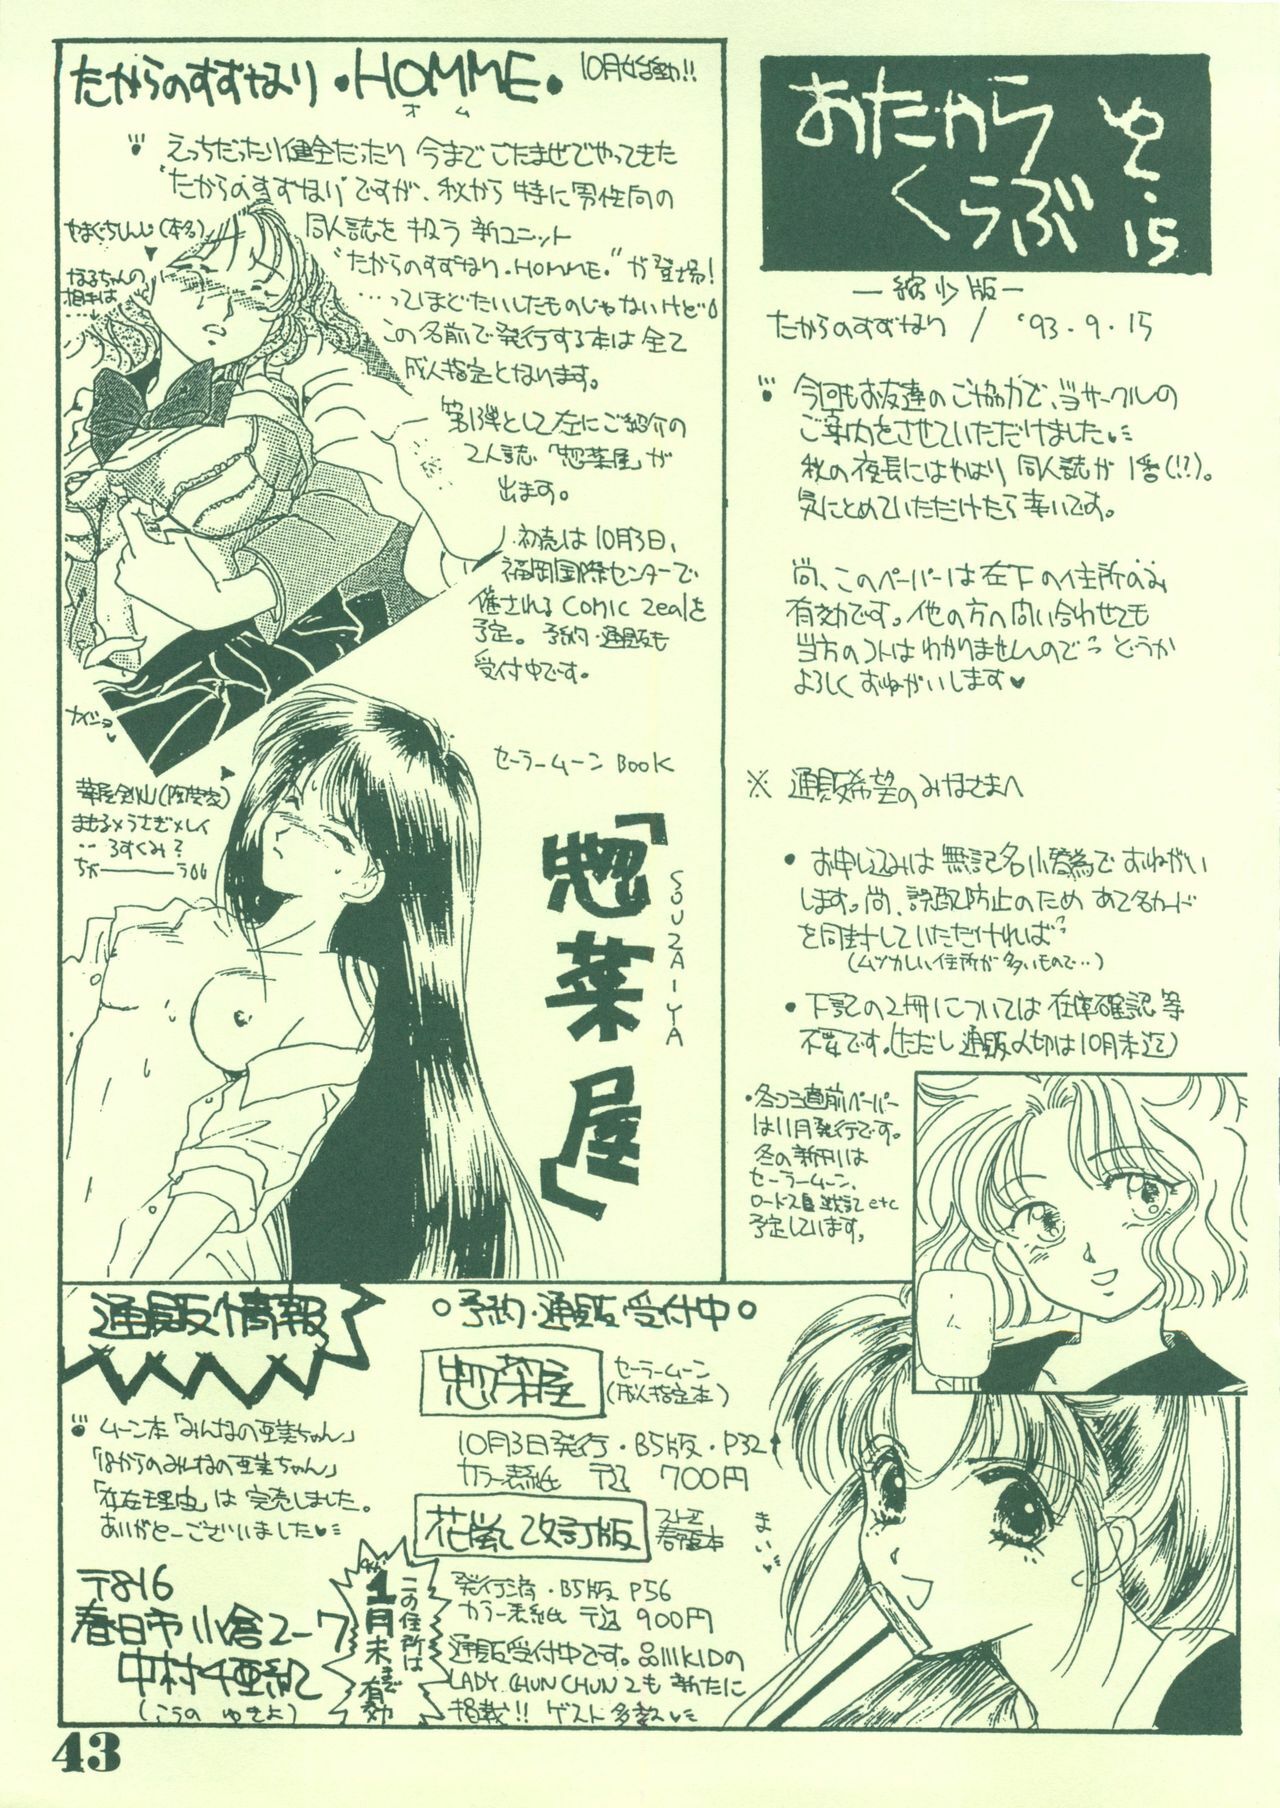 たからのすずなり・HOMME・ 10月始動!!
オム
えっちだったり健全だったり 今まで ごたまぜでやってきた
"たからのすずなり"ですが、秋から 特に男性向の
同人誌を 扱う 新ユニット
"たからのすずなり・HOMME・"が登場!
…ってほどたいしたものじゃないけど
この名前で発行する本は 全て
成人指定となります。
第1弾として左にご紹介の
2人誌「惣菜屋」が
出ます。
初売は10月3日、
福岡国際センターで
催される Comic Zealを
予定。予約・通販も
受付中です。
やまぐちしんじ(本名)
なるちゃんの
相手は
…
ナイショ
セーラームーン BOOK
「惣菜屋」
SOUZAIYA
まもる×うさぎ×レイ
‥ろすくみ?
ちが――――うろぉ
おたから
くらぶ
ゆ・15
―縮少版―
たからのすずなり / '93・9・15
今回もお友達のご協力で、当サークルの
ご案内をさせていただけました
秋の夜長にはやはり 同人誌が 1番(!?)。
気にとめていただけたら幸いです。
尚、このペーパーは左下の住所のみ
有効です。他の方へ問い合わせても
当方のコトはわかりませんので どうか
よろしく おねがいします♥
※ 通販希望のみなさまへ
・お申し込みは 無記名小替為で おねがい
します。尚、誤配防止のため あて名カード
を同封していただければ
(ムツカしい住所が多いもので…)
・下記の2冊については 在庫確認等
不要です。(ただし 通販〆切は10月末迄)
ペーパー
は11月発行です。
冬の新刊は
セーラームーン、
ロードス島戦記 etc
予定しています。
通販情報
ムーン本「みんなの亜美ちゃん」
「18からのみんなの亜美ちゃん」
「存在理由」は 完売しました。
ありがとーございました
〒816
春日市小倉2-7
中村千亜紀
(こうの ゆきよ)
この住所は
'94 1月末まで有効
○予約・通販受付中○
惣菜屋
セーラームーン
(成人指定本)
10月3日発行・B5版・P32
カラー表紙 〒込 700円
花嵐 改訂版
ストⅡ
春麗本
発行済・B5版 P56
カラー表紙 〒込 900円
通販受付中です。品川KIDの
LADY CHUN CHUN 2も新たに
掲載!! ゲスト多数
まいっ
43